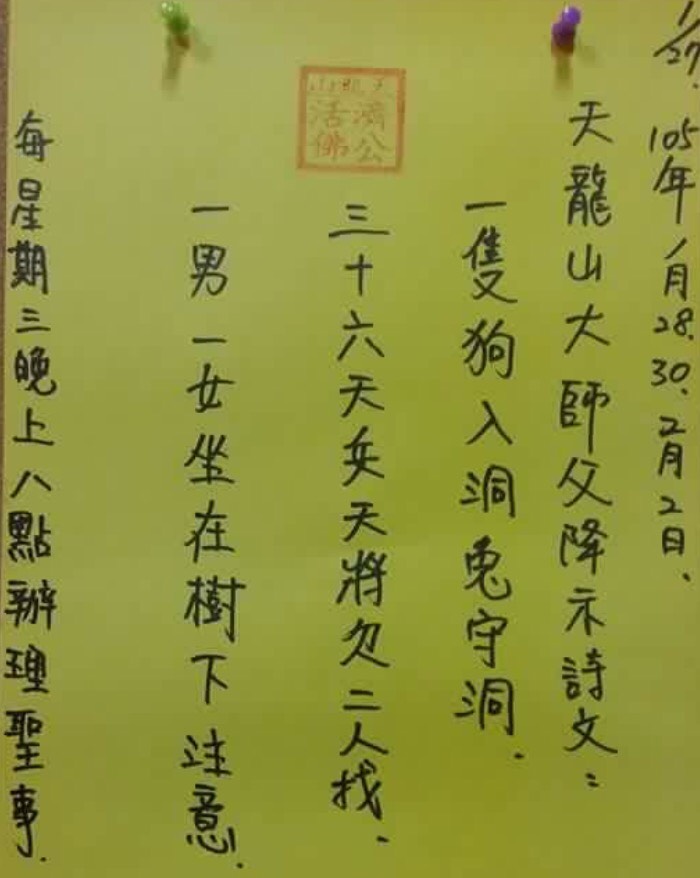 1/27.
105年1月28.30.2月2日.
天龍山大師父降示詩文:
一隻狗入洞兔守洞.
三十六天兵天將欠二人找.
一男一女坐在樹下注意.
每星期三晚上八點辦理聖事.
天龍山
濟公
活佛